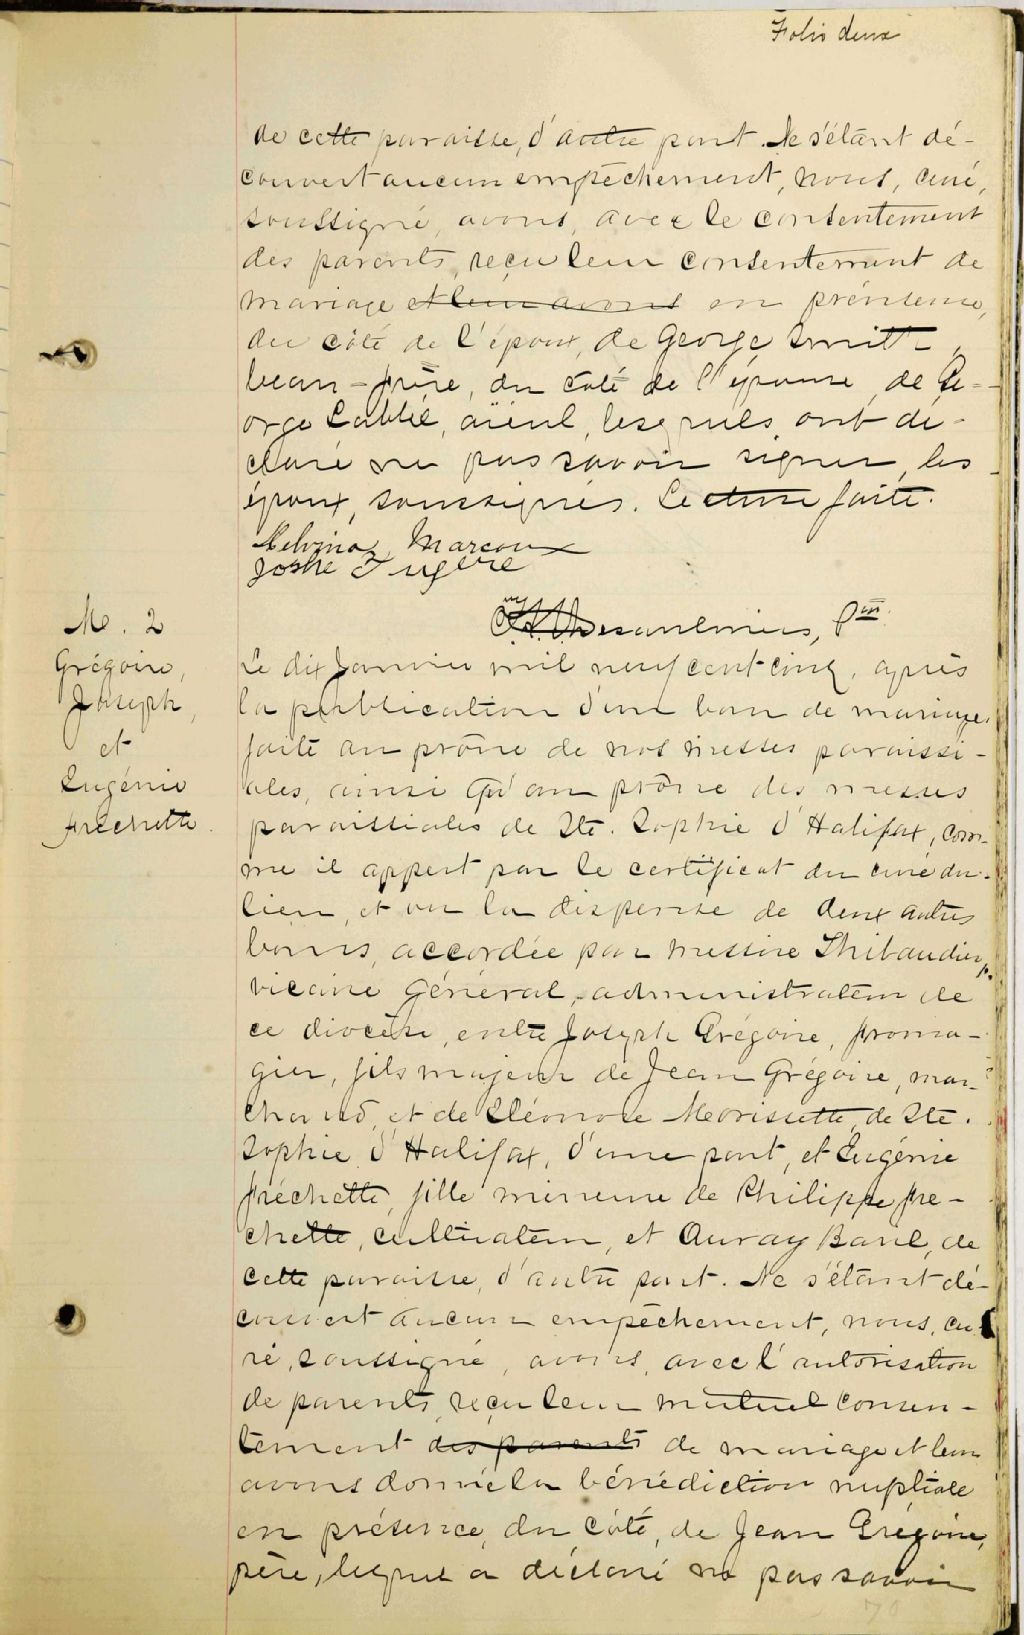 Folio deux
de cette paroisse, d'autre part. Ne s'étant dé-
couvert aucun empêchement, nous, curé,
soussigné, avons, avec le consentement
des parents, reçu leur consentement de
mariage et leur avons en présence,
du côté de l'époux, de George Smith,
beau-frère, du côté de l'épouse, de Ge-
orge Labbé, aïeul, lesquels ont dé-
claré ne pas savoir signer, les
époux, soussignés. Lecture faite.
Melvina Marcoux
Joshe Fugère
Ptre.
M. 2
Grégoire,
Joseph,
et
Eugénie
Fréchette.
Le dix Janvier mil neuf cent cinq, après
la publication d'un ban de mariage,
faite au prône de nos messes paroissi-
ales, ainsi qu'au prône des messes
paroissiales de Ste. Sophie d'Halifax, com-
me il appert par le certificat du curé du
lieu, et vu la dispense de deux autres
bans, accordée par messire Thibaudier,
vicaire général, administrateur de
ce diocèse, entre Joseph Grégoire, froma-
gier, fils majeur de Jean Grégoire, mar-
chand, et de Eléonore Morissette, de Ste.
Sophie d'Halifax, d'une part, et Eugénie
Fréchette, fille mineure de Philippe Fré-
chette, cultivateur, et Auray Baril, de
cette paroisse, d'autre part. Ne s'étant dé-
couvert aucun empêchement, nous, cu-
ré, soussigné, avons, avec l'autorisation
de parents, reçu leur mutuel consen-
tement des parents de mariage et leur
avons donné la bénédiction nuptiale
en présence, du côté, de Jean Grégoire,
père, lequel a déclaré ne pas savoir